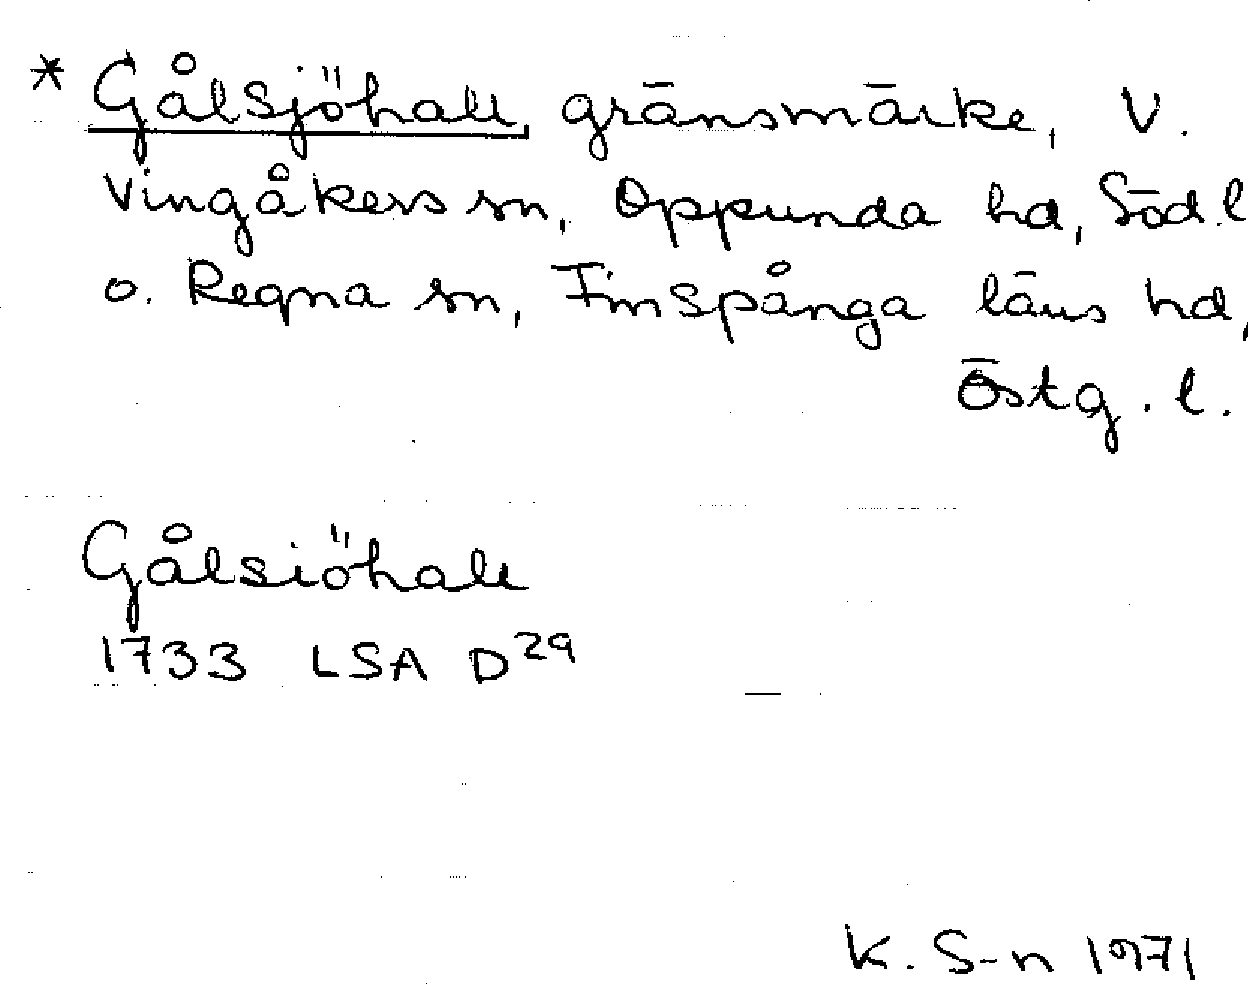 * Gålsjöhall, gränsmärke, V.
Vingåkers sn, Oppunda hd, Söd. l
o. Regna sn, Finspånga läns hd,
Östg. l.
Gålsiöhall
1733 LSA D29
K. S-n 1971